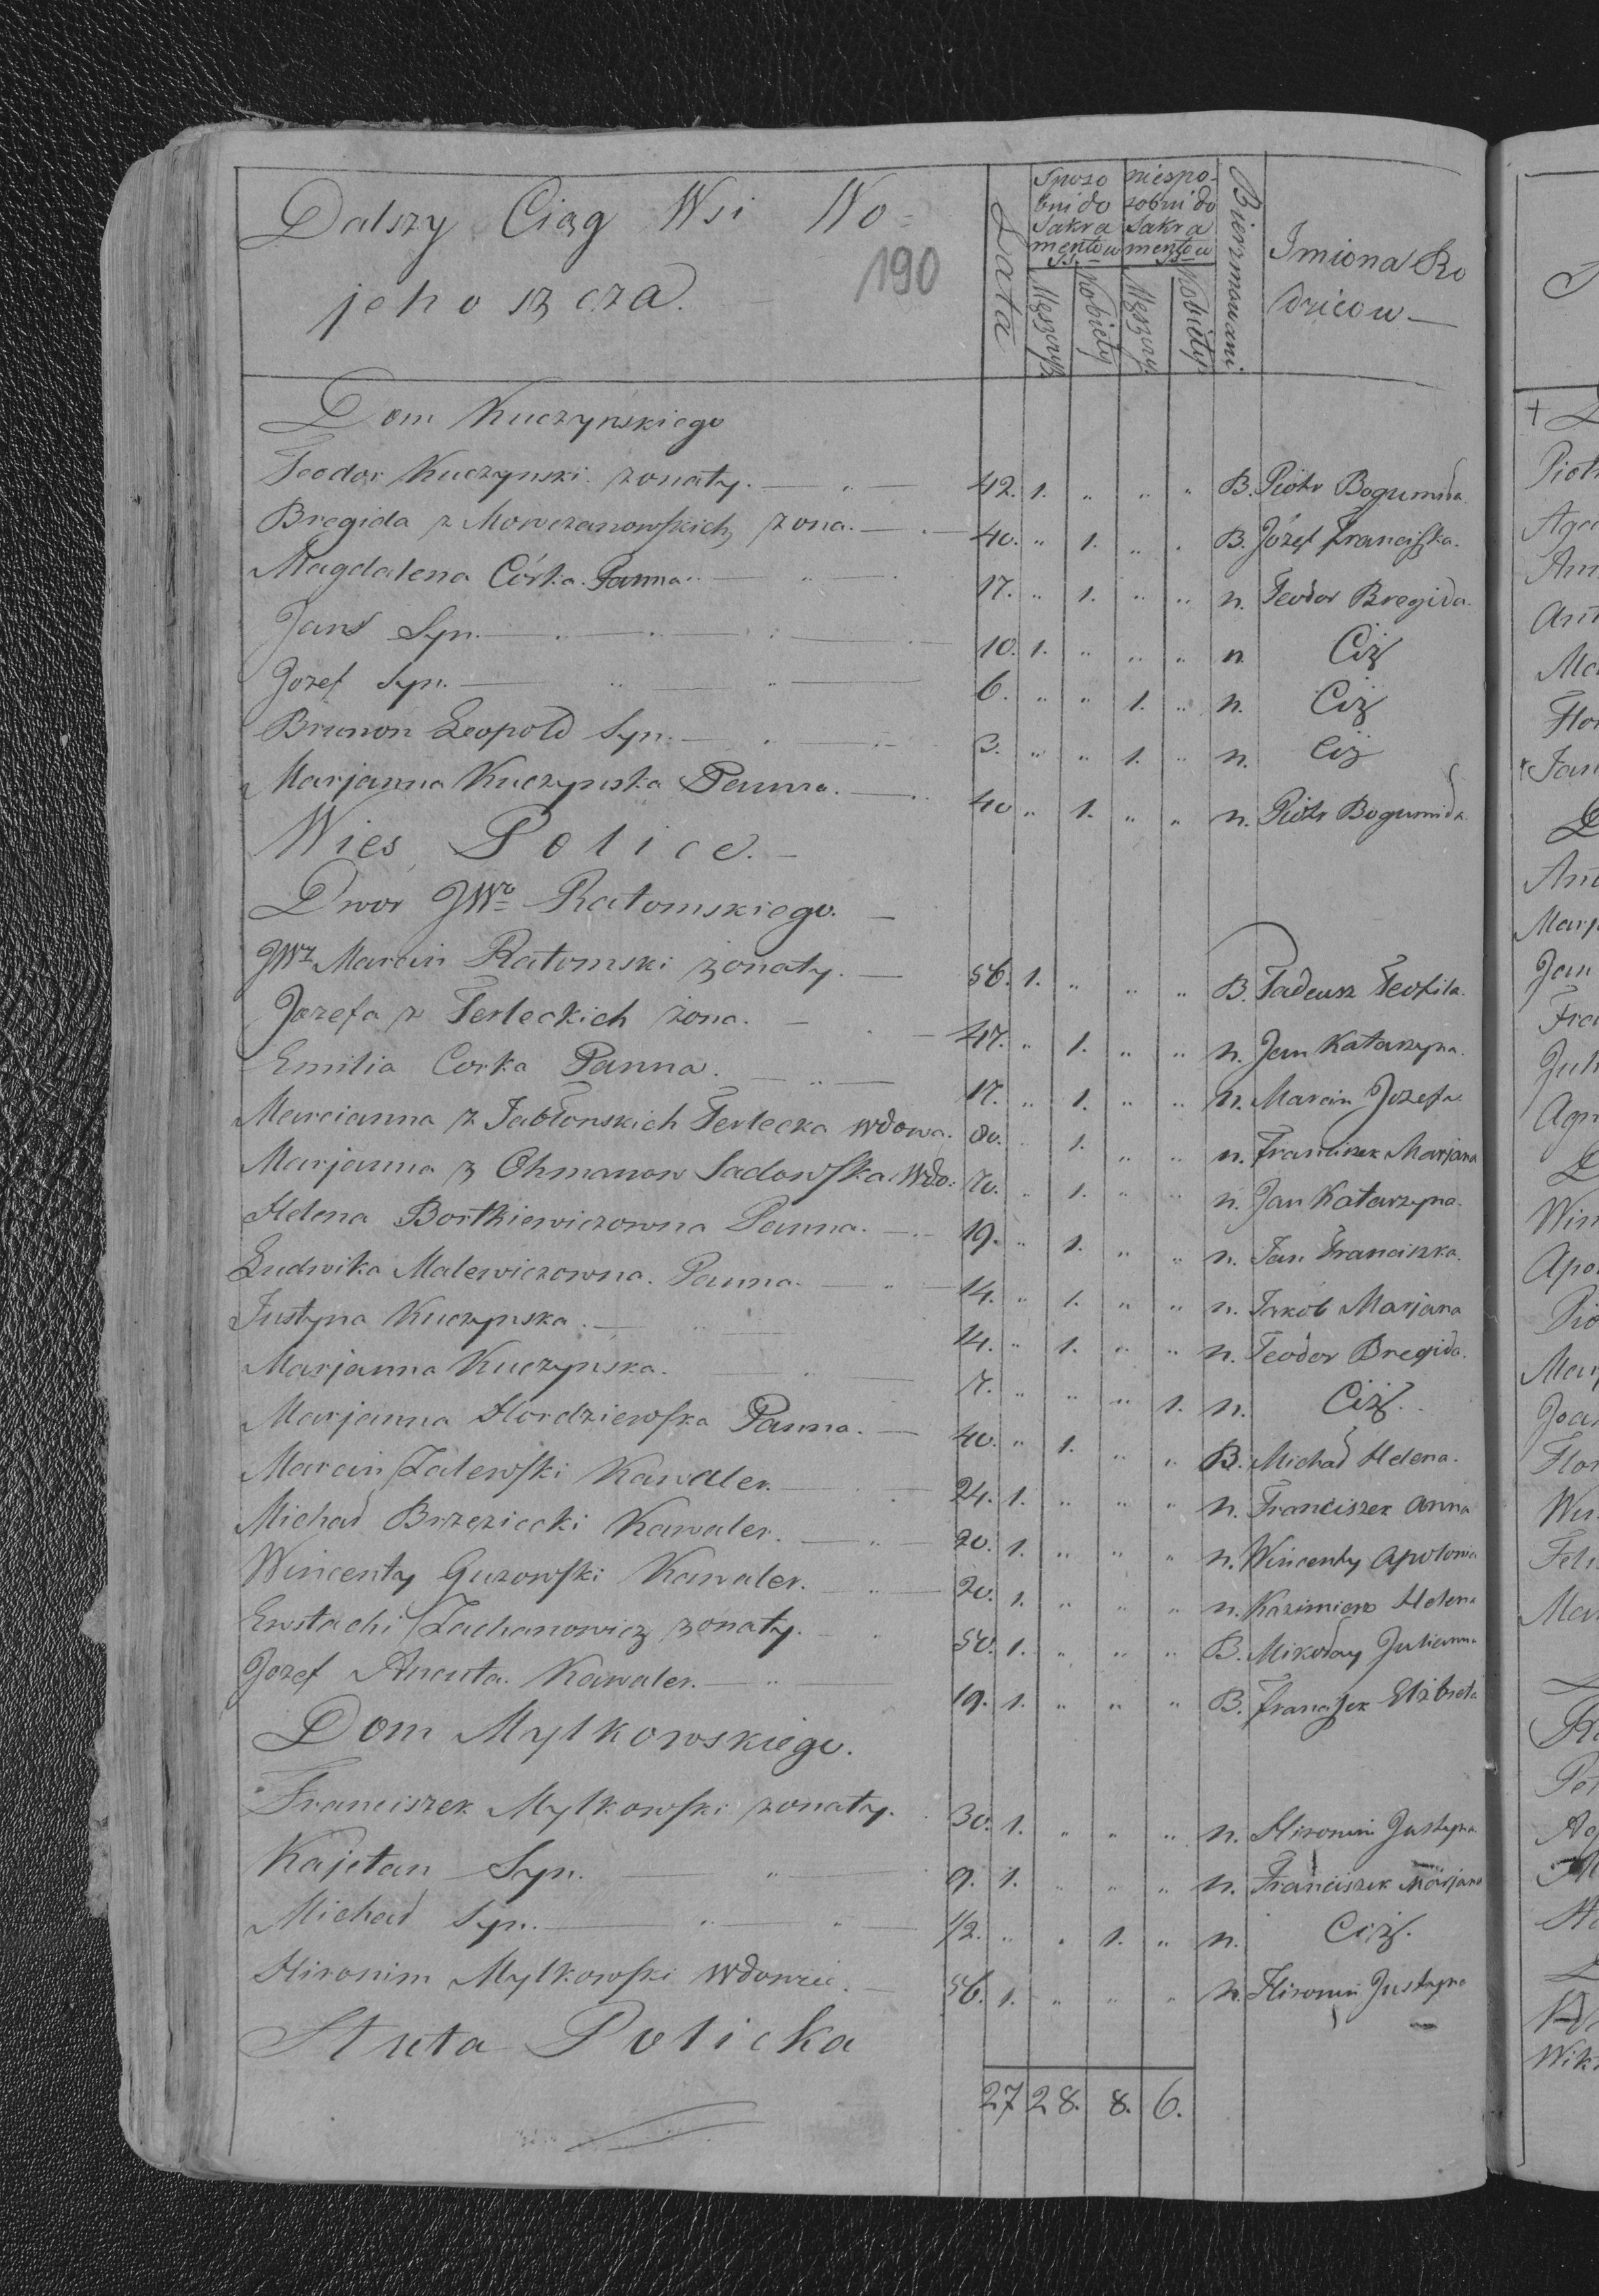 Dalszy Ciąg Wsi No=
jehoszcza.
190
Lata
Sposo niespo-
bni do sobni do
Sakra Sakra
mentow mentow
SS. SS.
Męszczyź Kobiety Męszczy. Kobiety
Bierzmowani
Imiona Ro
dzicow —
Dom Kuczynskiego
Teodor Kuczynski. zonaty. — " — 42. 1. " " " B. Piotr Bogumiła
Bregida z Mowczanowskich zona. — 40. " 1. " " B. Józef Franciszka.
Magdalena Córka Panna. — " 17. " 1. " " n. Teodor Bregida.
Jans Syn. — " — " — 10. 1. " " " n Ciż
Jozef Syn. — " " — 6. " " 1. " n. Ciż
Brunon Leopold Syn. — " — 3. " " 1. " n. Ciż
Marjanna Kuczynska Panna. — 40 " 1. " " n. Piotr Bogumiła.
Wies Police. —
Dwor JWo Ratomskiego. —
JWz Marcin Ratomski zonaty. — 56. 1. " " " B. Tadeusz Teofila.
Jozefa z Terleckich żona. — 47. " 1. " " n. Jan Katarzyna.
Emilia Corka Panna. — " — 17. " 1. " " n. Marcin Jozefa.
Marcianna z Jabłonskich Terlecka wdowa. 80. " 1. " " n. Franciszek Marjana
Marjanna z Ohmanow Sadowska Wdo: 70. " 1. " " n. Jan Katarzyna.
Helena Bortkiewiczowna Panna. — 19. " 1. " " n. Jan Franciszka.
Ludwika Malewiczowna. Panna. — " — 14. " 1. " " n. Jakób Marjana
Justyna Kuczynska. — " — 14. " 1. " " n. Teodor Bregida.
Marjanna Kuczynska. — " — 7. " " " 1. n. Ciż.
Marjanna Hordziewska Panna. — 40. " 1. " " B. Michał Helena.
Marcin Zalewski Kawaler. — 24. 1. " " " n. Franciszek Anna
Michał Brzeziecki Kawaler. — " — 20. 1. " " " n. Wincenty Apolonia
Wincenty Guzowski Kawaler. — " — 20. 1. " " " n. Kazimierz Helena
Ewstachi Zachanowicz zonaty. — 50. 1. " " " B. Mikołay Julianna
Jozef Ancuta. Kawaler. — " — 19. 1. " " " B. Franciszek Elżbieta
Dom Mylkowskiego.
Franciszek Mylkowski zonaty. 30. 1. " " " n. Hironim Justyna.
Kajetan Syn. — " — 9. 1. " " " n. Franciszek Marjana
Michał Syn. — " " — 1/2. " " 1. " n. Ciż.
Hironim Mylkowski wdowiec. — 56. 1. " " " n. Hironim Justyna
Policka
27 28. 8. 6.